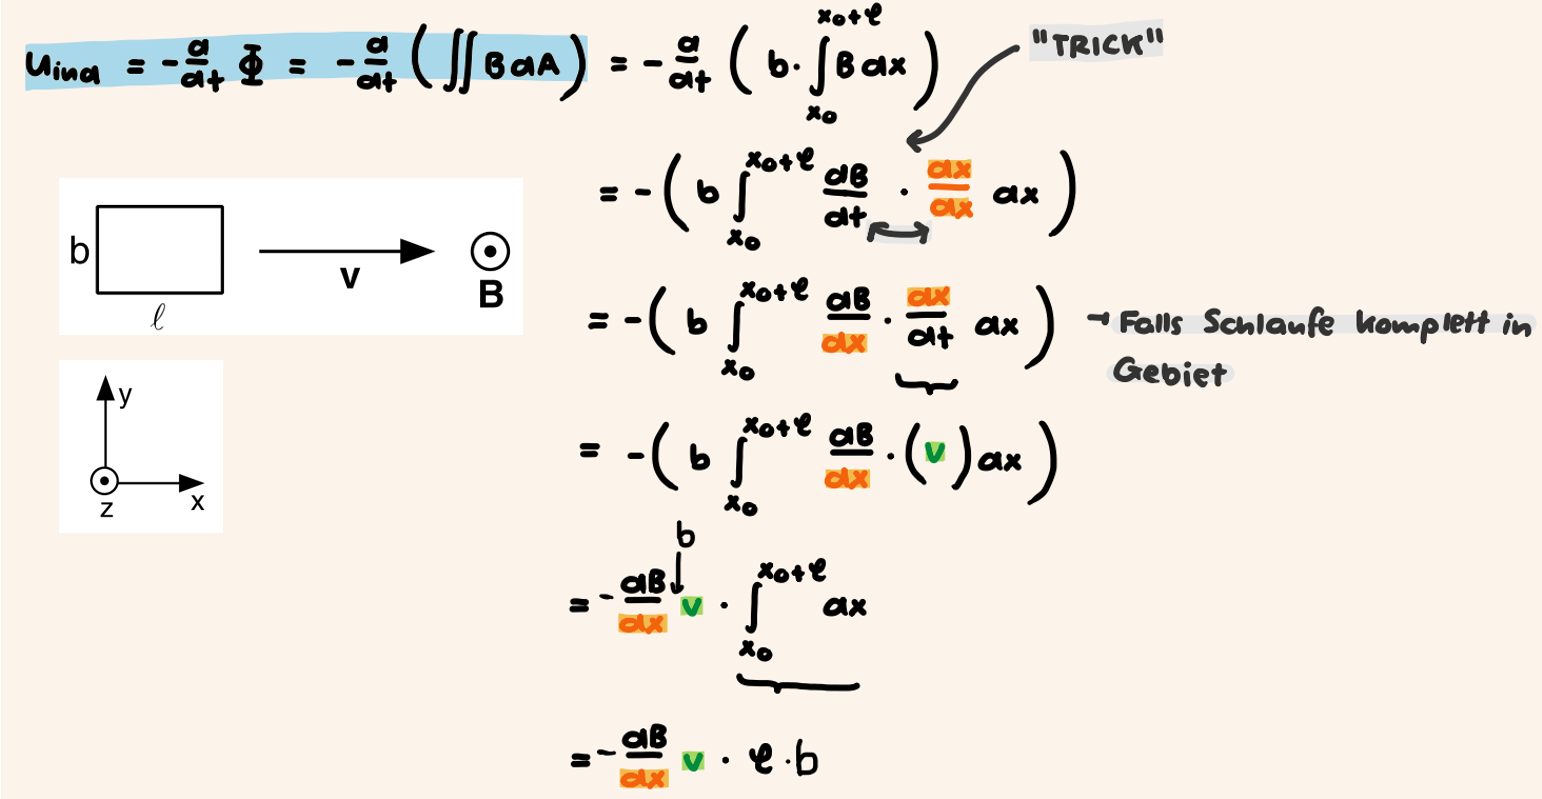 Uind = - d/dt Φ = - d/dt ( ∬ B dA ) = - d/dt ( b · ∫_{x₀}^{x₀+ℓ} B dx )
"TRICK"
= - ( b ∫_{x₀}^{x₀+ℓ} dB/dt · dx/dx dx )
b
v
B
ℓ
= - ( b ∫_{x₀}^{x₀+ℓ} dB/dx · dx/dt dx ) → Falls Schlaufe komplett in
Gebiet
y
z
x
= - ( b ∫_{x₀}^{x₀+ℓ} dB/dx · ( v ) dx )
b
= - dB/dx v · ∫_{x₀}^{x₀+ℓ} dx
= - dB/dx v · ℓ · b